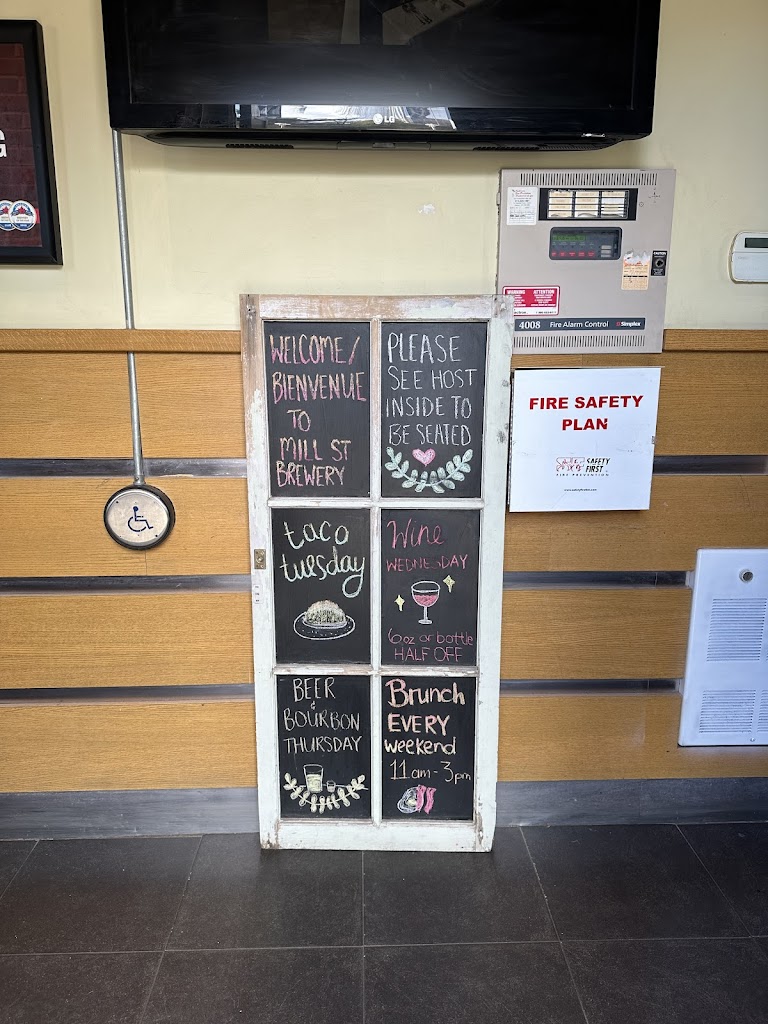 LG
G
WARNING
ATTENTION
CAUTION
4008 Fire Alarm Control Simplex
FIRE SAFETY
PLAN
SAFETY
FIRST
FIRE PREVENTION
WELCOME/
BIENVENUE
TO
MILL ST
BREWERY
PLEASE
SEE HOST
INSIDE TO
BE SEATED
taco
tuesday
Wine
WEDNESDAY
6oz or bottle
HALF OFF
BEER
&
BOURBON
THURSDAY
Brunch
EVERY
weekend
11am-3pm